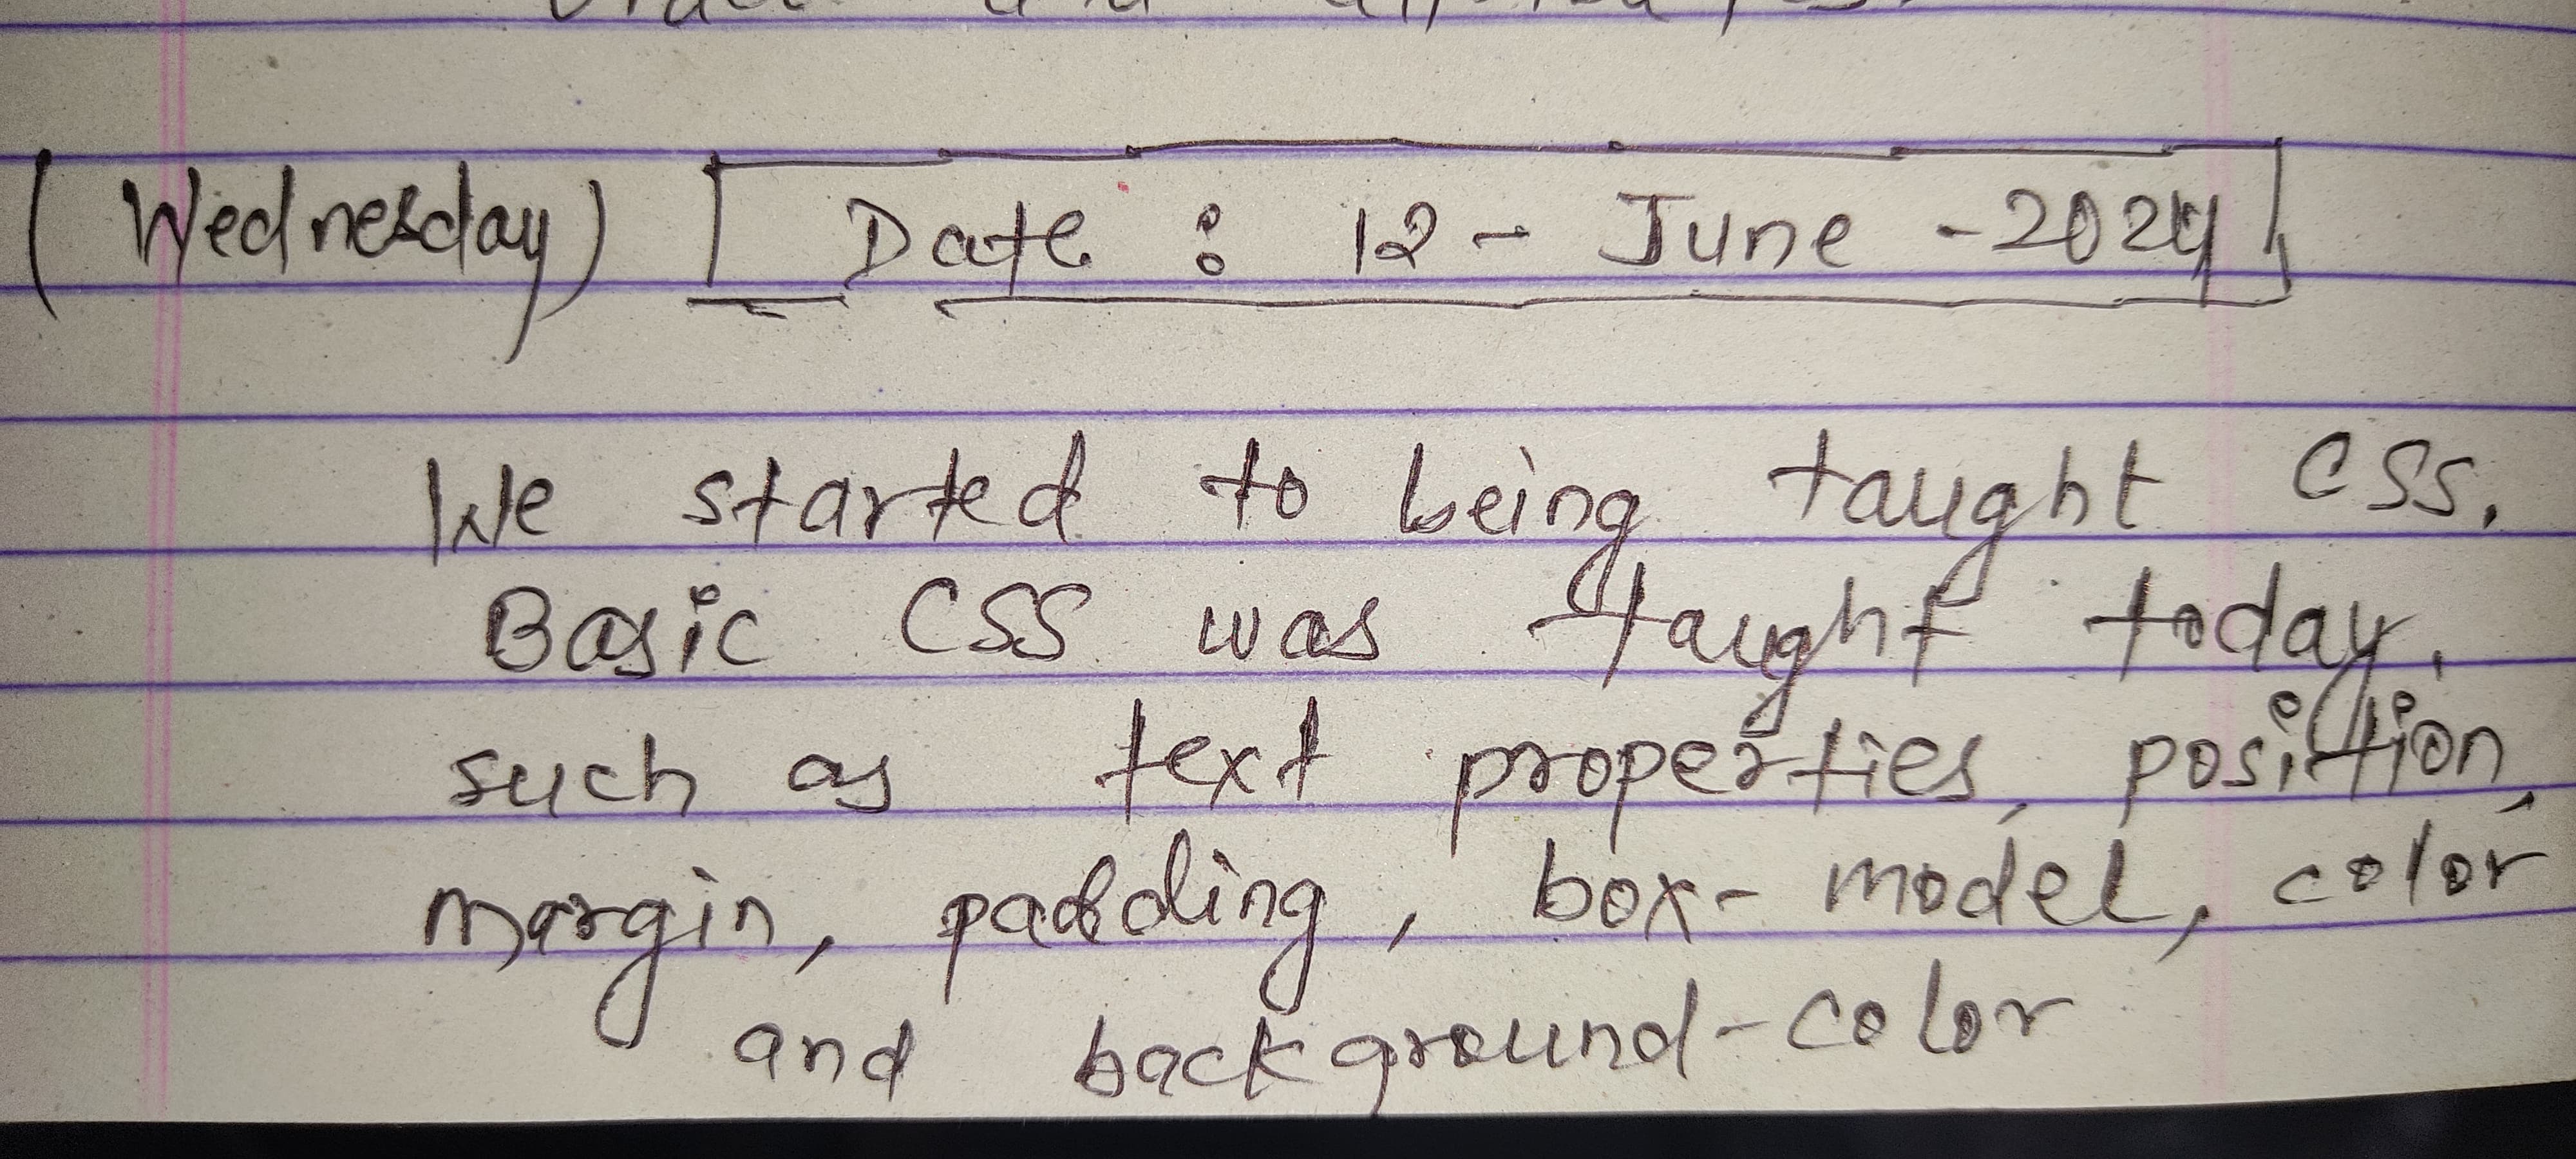 (Wednesday) Date : 12 - June - 2024
We started to being taught CSS.
Basic CSS was taught today.
such as text properties, position,
margin, padding, box-model, color
and background-color